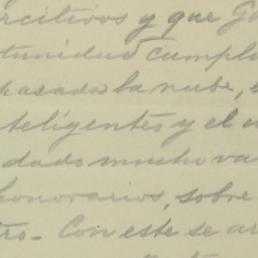 rcitivos y que Go
tunidad cumpli
pasada la nube, e
teligentes y el
dado mucho va
honorarios, sobre
tro - Con este se ar